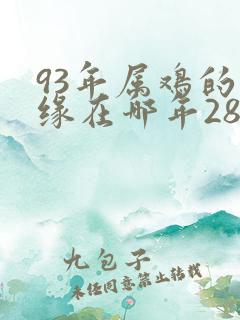 93年属鸡的
缘在哪年28
九包子
未经同意禁止转载